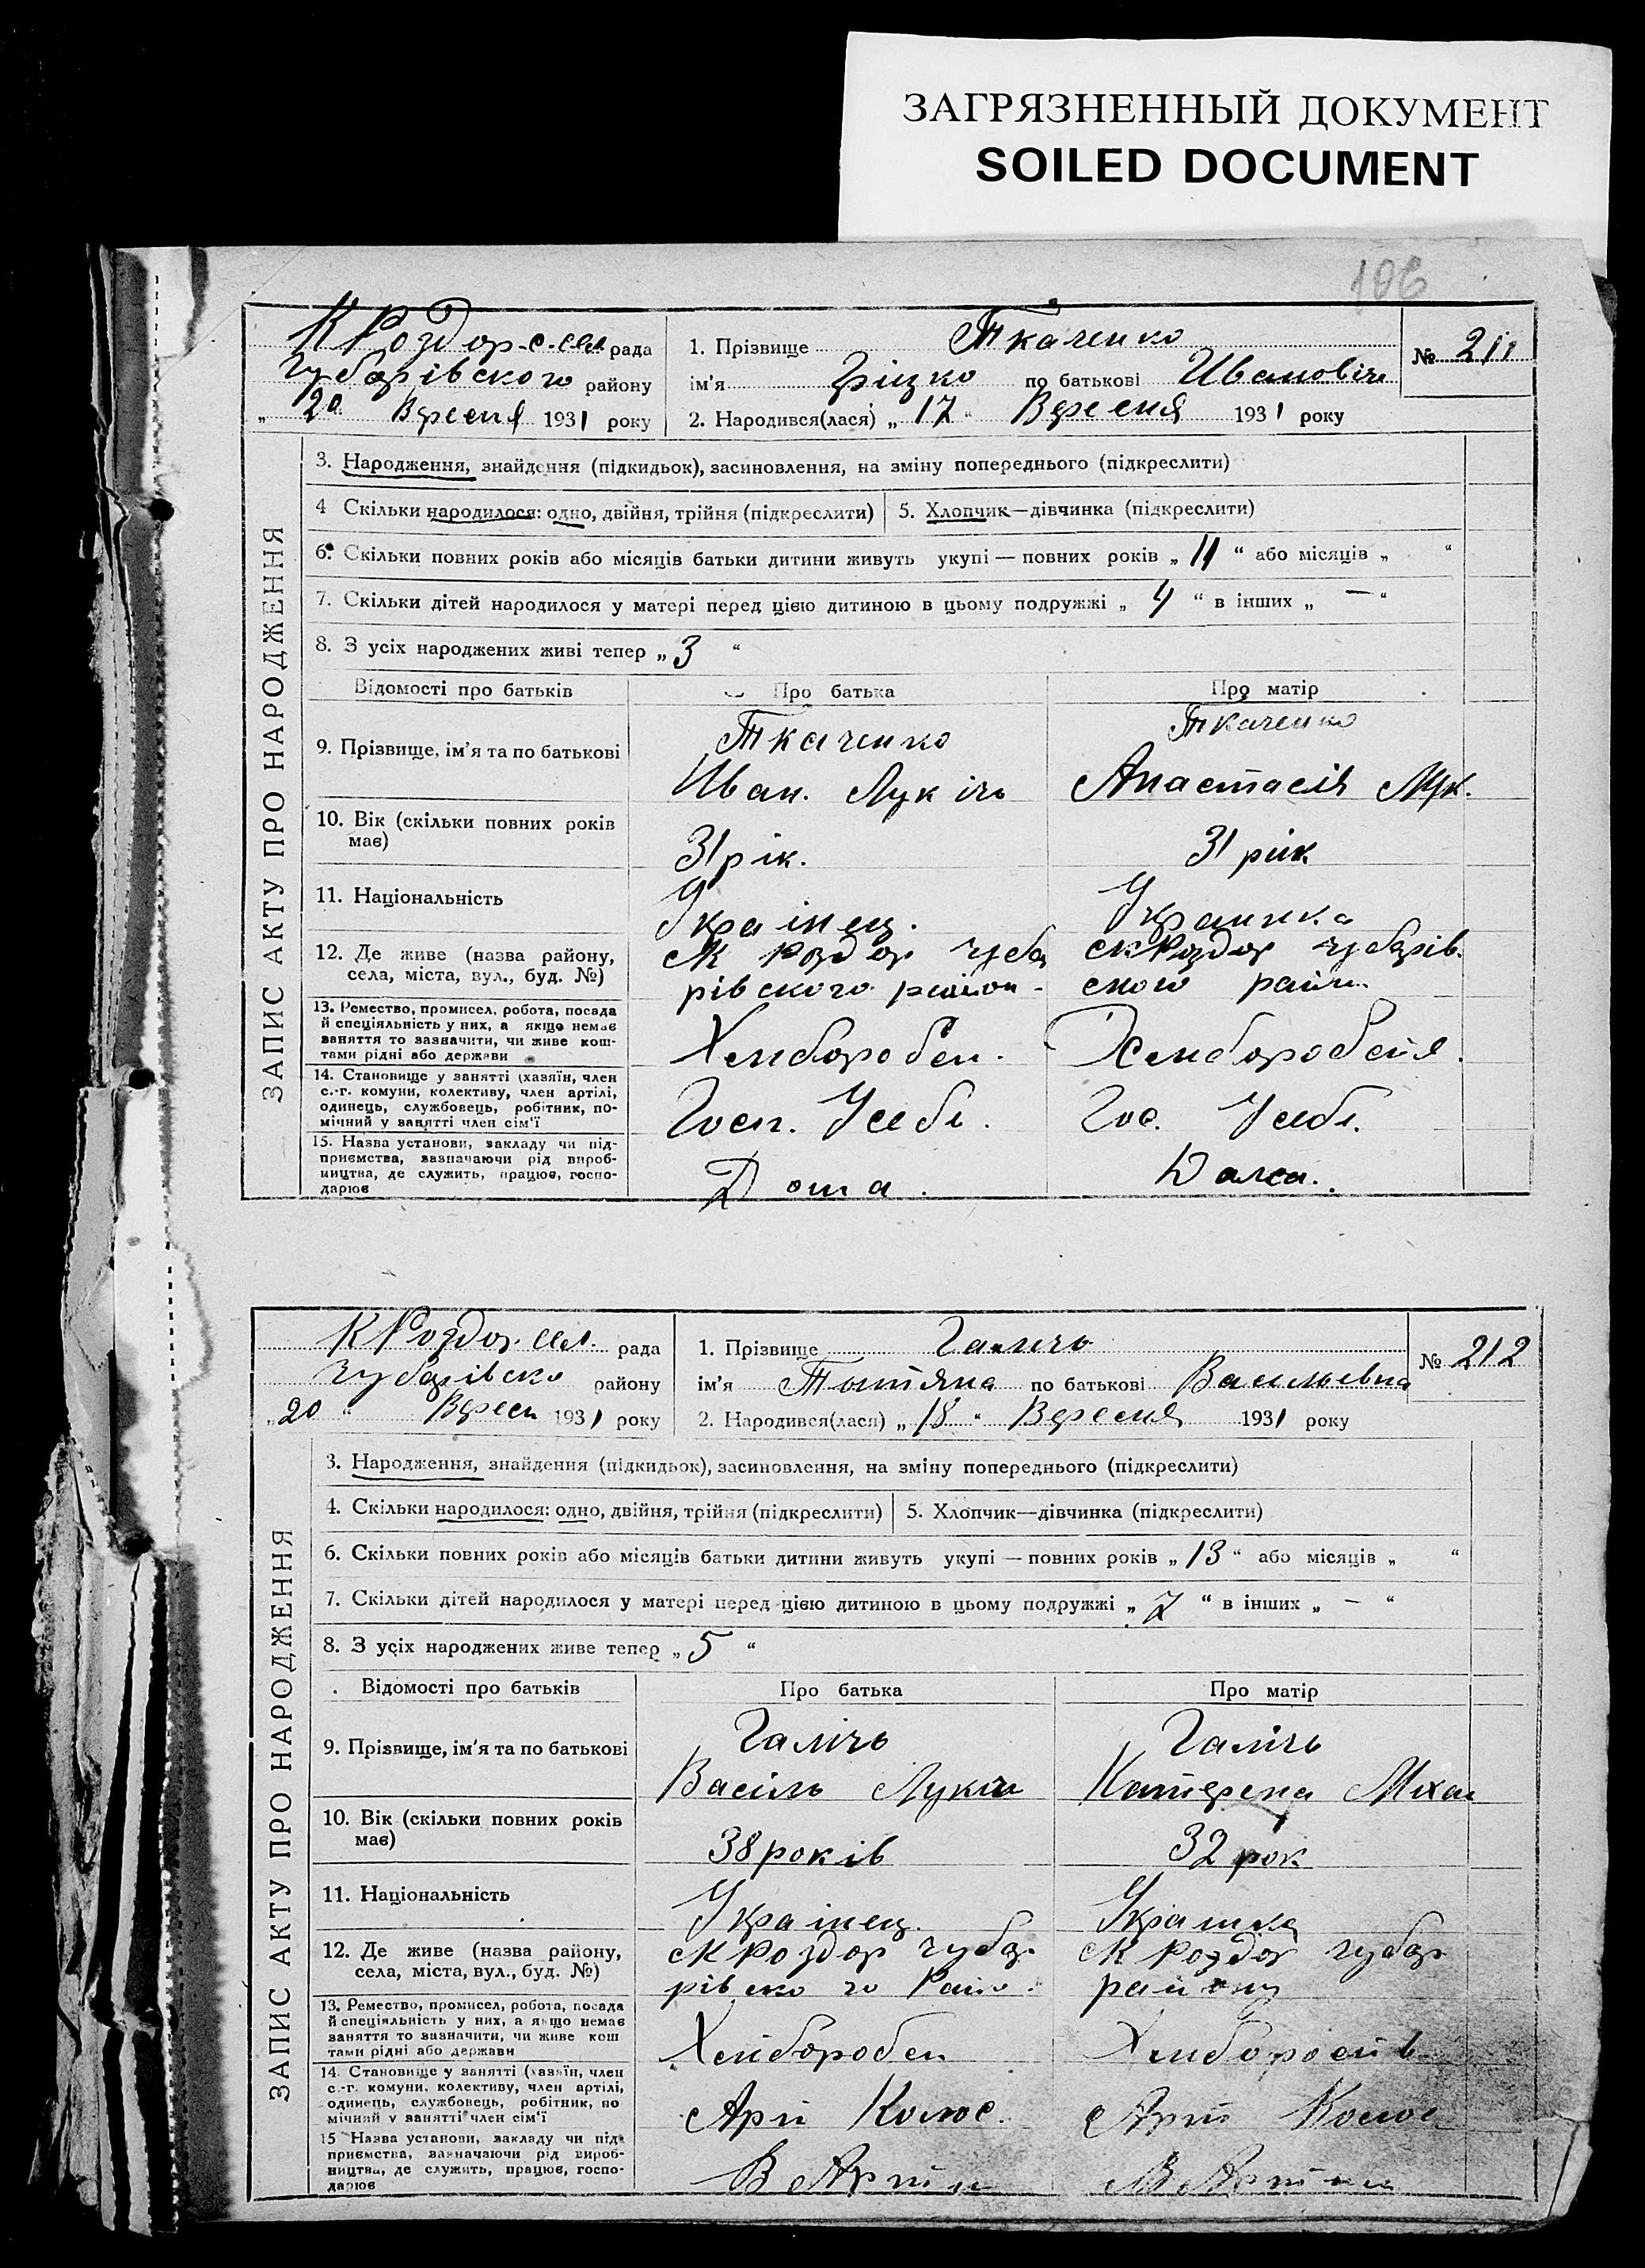 ЗАГРЯЗНЕННЫЙ ДОКУМЕНТ
SOILED DOCUMENT
106
К Роздор. с. сел рада
Чубарівского району
„ 20 Вересня 1931 року
1. Прізвище Ткаченко
ім'я Гріцко по батькові Ивановіч
2. Народився(лася) „ 17 “ Вересня 1931 року
№ 211
ЗАПИС АКТУ ПРО НАРОДЖЕННЯ
3. Народження, знайдення (підкидьок), засиновлення, на зміну попереднього (підкреслити)
4 Скільки народилося: одно, двійня, трійня (підкреслити) 5. Хлопчик—дівчинка (підкреслити)
6. Скільки повних років або місяців батьки дитини живуть укупі — повних років „ 11 “ або місяців „ “
7. Скільки дітей народилося у матері перед цією дитиною в цьому подружжі „ 4 “ в інших „ — “
8. З усіх народжених живі тепер „ 3 “
Відомості про батьків Про батька Про матір
9. Прізвище, ім'я та по батькові
Ткаченко
Иван. Лукічь
Ткаченко
Анастасія Мрк.
10. Вік (скільки повних років
має)
31 рік.
31 рік
11. Національність
Украінец.
Украинка
12. Де живе (назва району,
села, міста, вул., буд. №)
с К Роздор Чуба
рівского район-
с К Роздор Чубарів.
ского райн.
13. Ремество, промисел, робота, посада
й спеціяльність у них, а якщо немає
заняття то зазначити, чи живе кош-
тами рідні або держави
Хлиборобеп.
Хлиборобетя.
14. Становище у занятті (хазяїн, член
с.-г. комуни, колективу, член артілі,
одинець, службовець, робітник, по-
мічний у занятті член сім'ї
Госп. Усебі.
Гос. Усебі.
15. Назва установи, закладу чи під-
приємства, зазначаючи рід вироб-
ництва, де служить, працює, госпо-
дарює
Дома.
Дома.
К Роздор. сел. рада
Чубарівско району
„ 20 “ Вересн 1931 року
1. Прізвище Галичь
ім'я Тытяна по батькові Васильевна
2. Народився(лася) „ 18 “ Вересня 1931 року
№ 212
ЗАПИС АКТУ ПРО НАРОДЖЕННЯ
3. Народження, знайдення (підкидьок), засиновлення, на зміну попереднього (підкреслити)
4. Скільки народилося: одно, двійня, трійня (підкреслити) 5. Хлопчик—дівчинка (підкреслити)
6. Скільки повних років або місяців батьки дитини живуть укупі — повних років „ 13 “ або місяців „ “
7. Скільки дітей народилося у матері перед цією дитиною в цьому подружжі „ 7 “ в інших „ — “
8. З усіх народжених живе тепер „ 5 “
Відомості про батьків Про батька Про матір
9. Прізвище, ім'я та по батькові
Галічь
Васіль Лукич
Галічь
Катерена Міхаи
10. Вік (скільки повних років
має)
38 років
32 рок
11. Національність
Украінец.
Украинка
12. Де живе (назва району,
села, міста, вул., буд. №)
с К Роздор Чубар
рівского Райо.
с К Роздор Чубар
району
13. Ремество, промисел, робота, посада
й спеціяльність у них, а якщо немає
заняття то зазначити, чи живе кош
тами рідні або держави
Хлиборобеп
14. Становище у занятті (хазяїн, член
с.-г. комуни, колективу, член артілі,
одинець, службовець, робітник, по
мічний у занятті член сім'ї
Арт Колос.
Арт Колос
15 Назва установи, закладу чи під-
приємства, зазначаючи рід вироб-
ництва, де служить, працює, госпо-
дарює
В Артіли
В Артіли